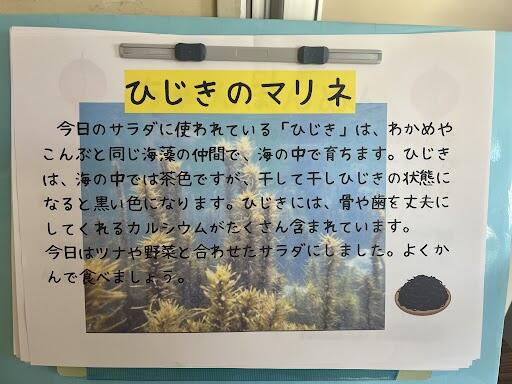 ひじきのマリネ
今日のサラダに使われている「ひじき」は、わかめや
こんぶと同じ海藻の仲間で、海の中で育ちます。ひじき
は、海の中では茶色ですが、干して干しひじきの状態に
なると黒い色になります。ひじきには、骨や歯を丈夫に
してくれるカルシウムがたくさん含まれています。
今日はツナや野菜と合わせたサラダにしました。よくか
んで食べましょう。